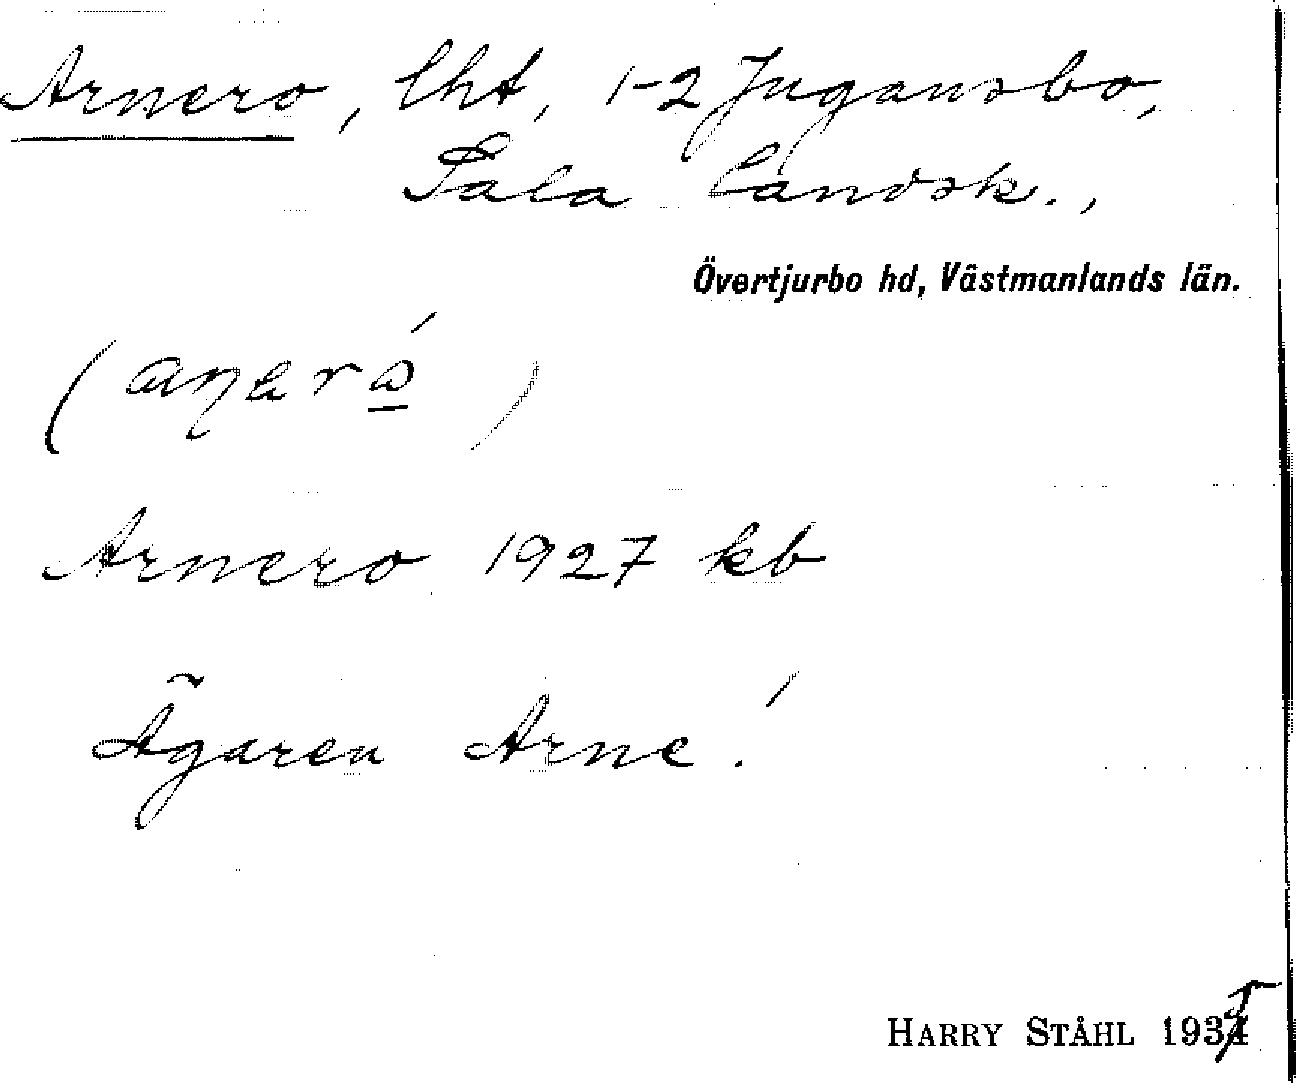 Arnero, lht, 1-2 Jugansbo,
Sala landsk.,
Övertjurbo hd, Västmanlands län.
Arnero 1927 kb
Ägaren Arne!
HARRY STÅHL 193